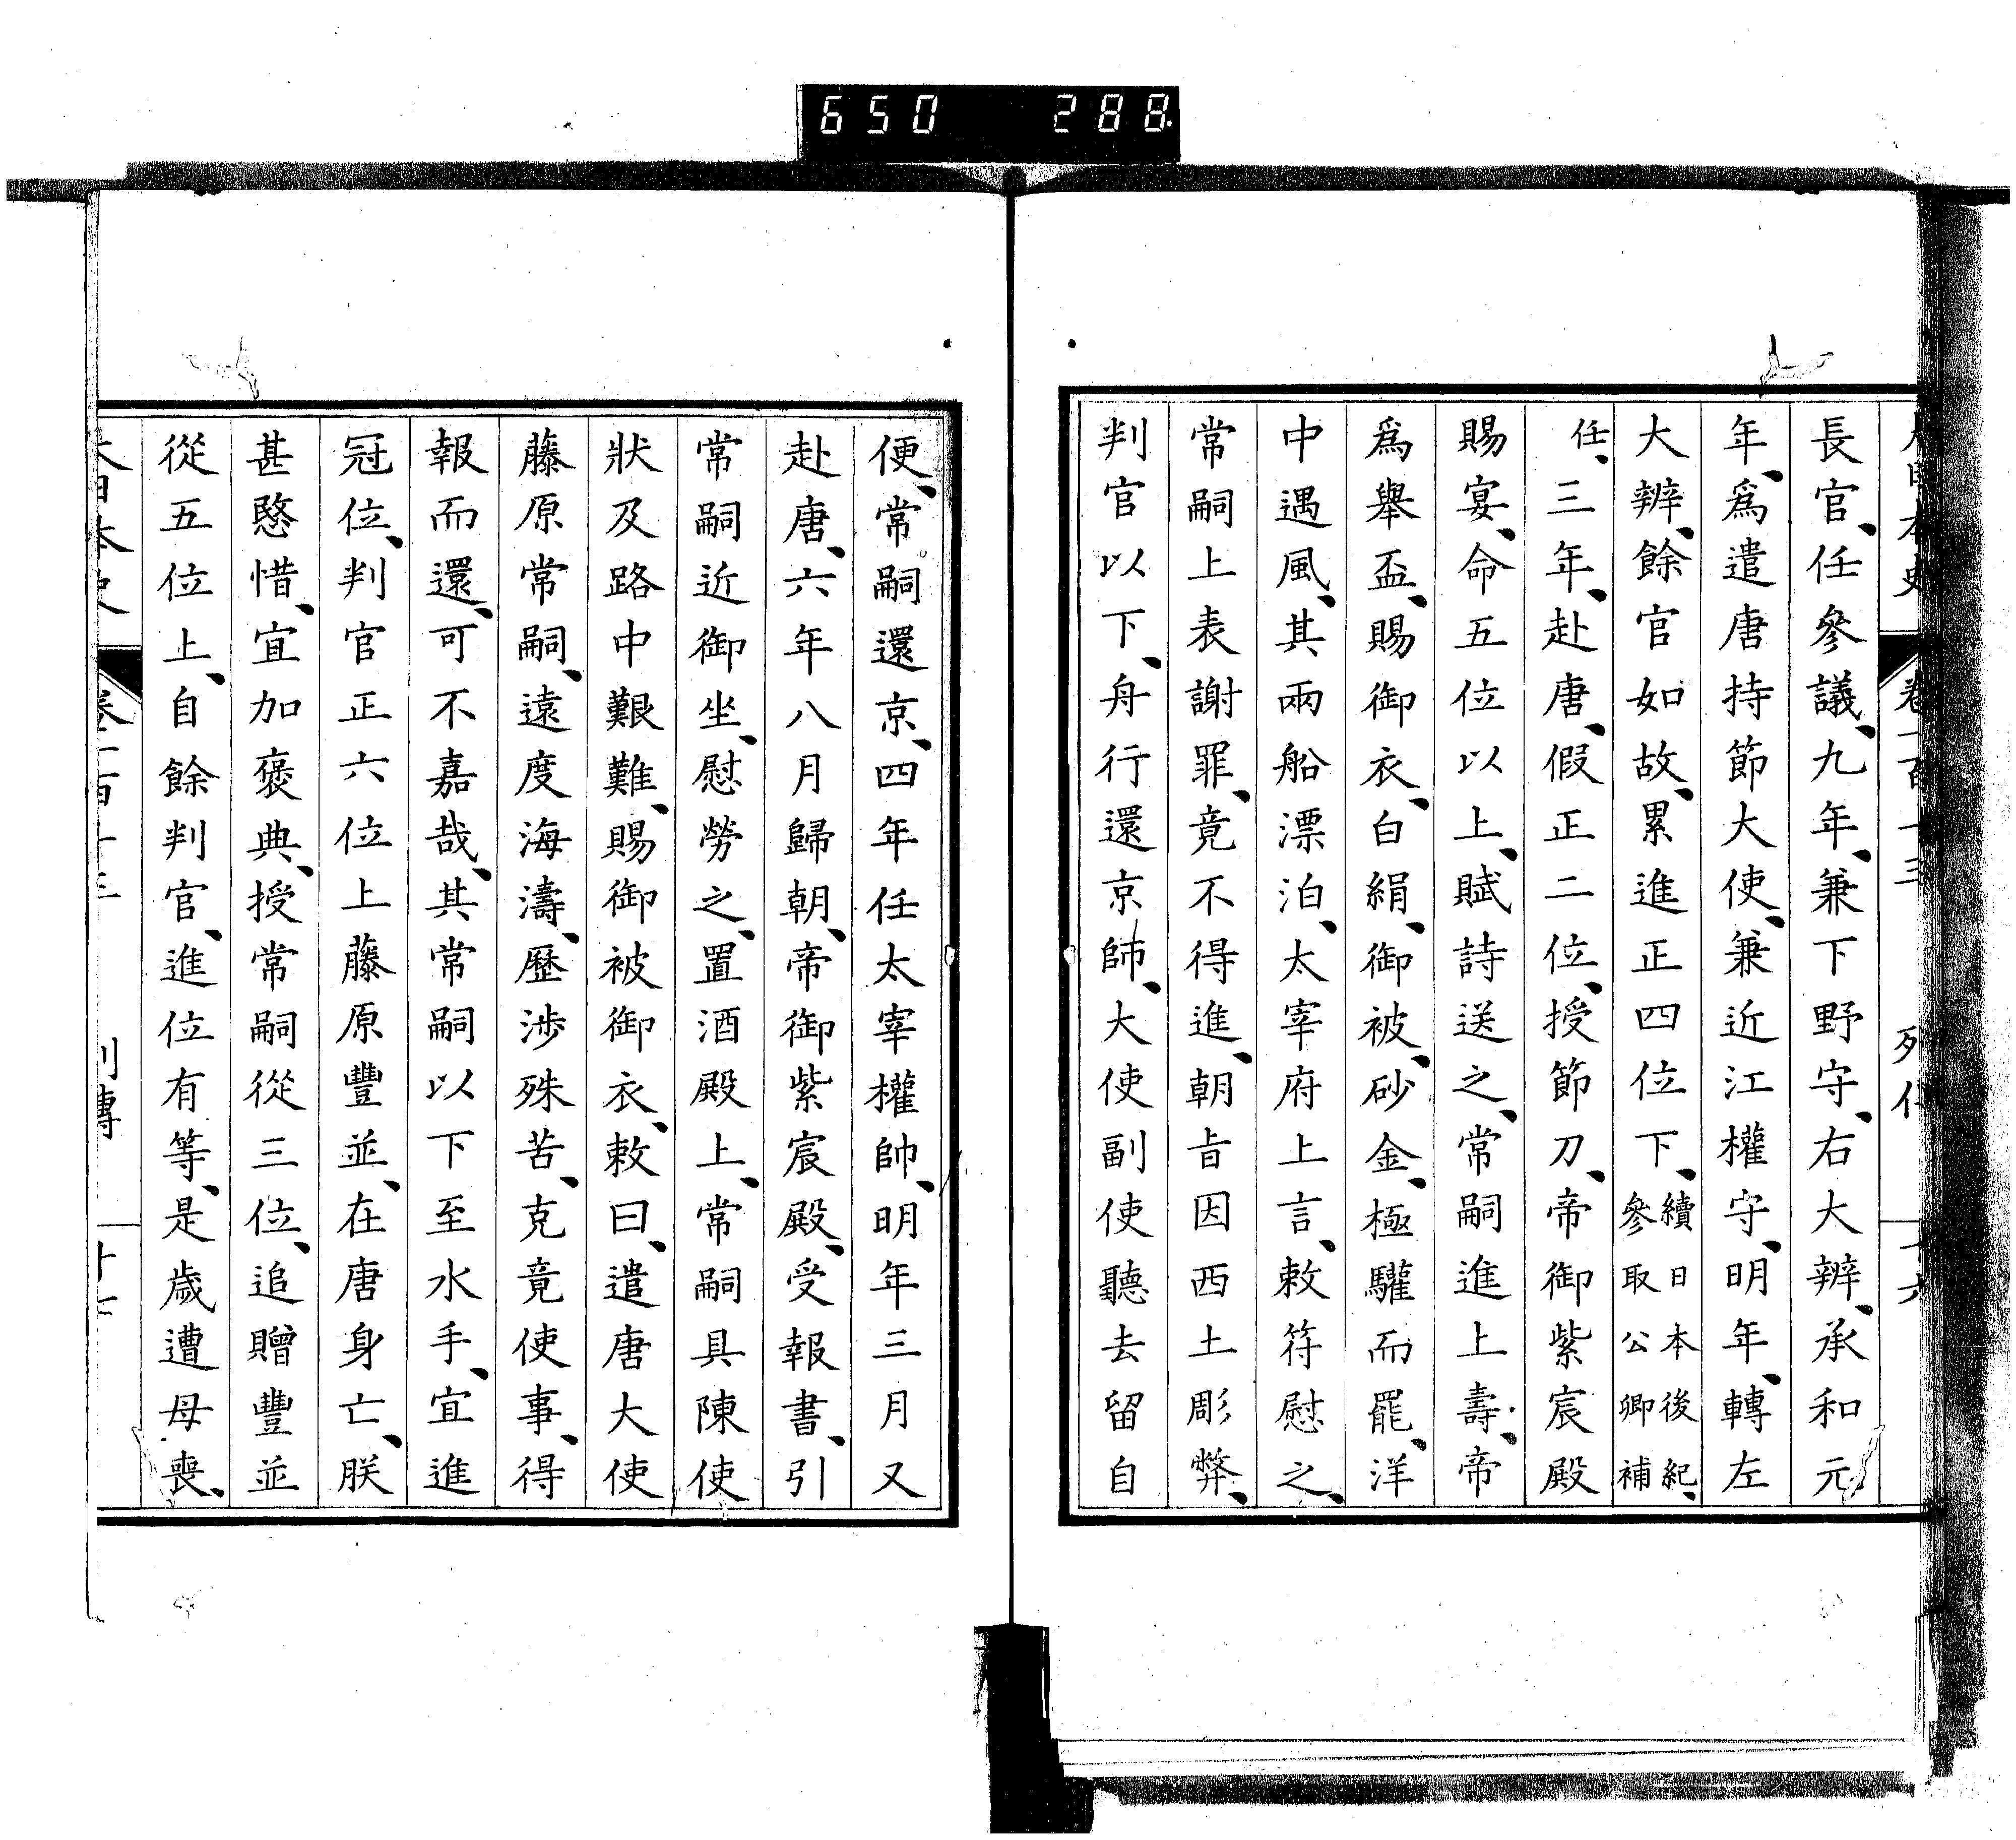 650 288
長官、任參議、九年、兼下野守、右大辨、承和元
年、爲遣唐持節大使、兼近江權守、明年、轉左
大辨、餘官如故、累進正四位下、續日本後紀、參取公卿補
任、三年、赴唐、假正二位、授節刀、帝御紫宸殿
賜宴、命五位以上、賦詩送之、常嗣進上壽、帝
爲舉盃、賜御衣、白絹、御被、砂金、極驩而罷、洋
中遇風、其兩船漂泊、太宰府上言、敕符慰之、
常嗣上表謝罪、竟不得進、朝旨因西土彫弊、
判官以下、舟行還京師、大使副使聽去留自
便、常嗣還京、四年任太宰權帥、明年三月又
赴唐、六年八月歸朝、帝御紫宸殿、受報書、引
常嗣近御坐、慰勞之、置酒殿上、常嗣具陳使
狀及路中艱難、賜御被御衣、敕曰、遣唐大使
藤原常嗣、遠度海濤、歷涉殊苦、克竟使事、得
報而還、可不嘉哉、其常嗣以下至水手、宜進
冠位、判官正六位上藤原豐並、在唐身亡、朕
甚愍惜、宜加褒典、授常嗣從三位、追贈豐並
從五位上、自餘判官、進位有等、是歲遭母喪、